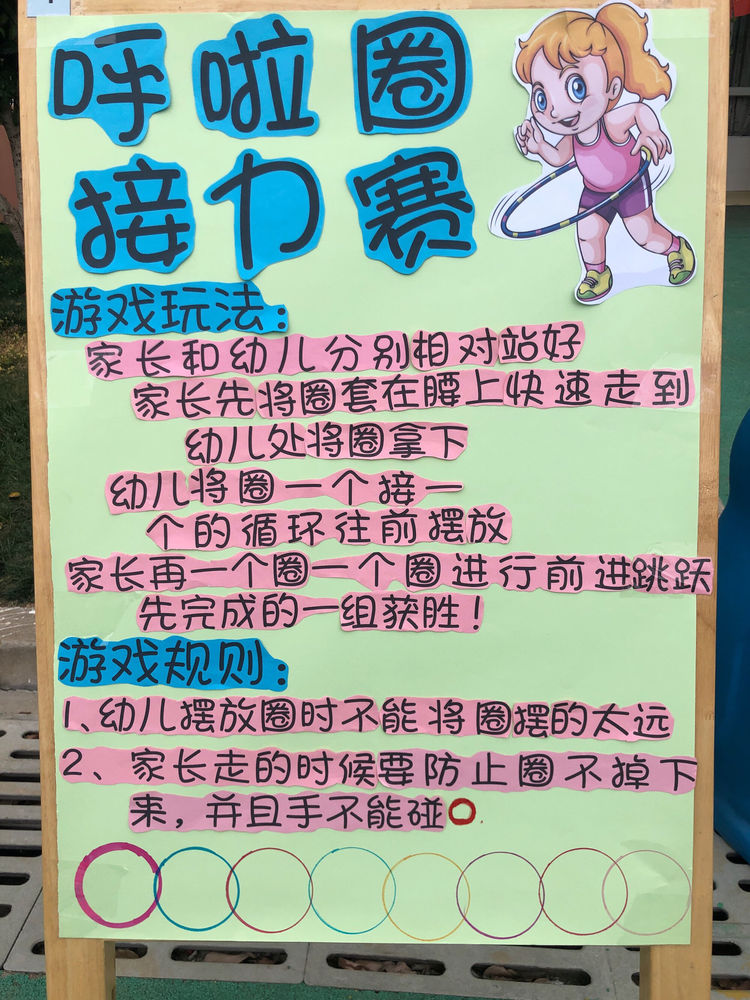 呼啦圈
接力赛
游戏玩法：
家长和幼儿分别相对站好
家长先将圈套在腰上快速走到
幼儿处将圈拿下
幼儿将圈一个接一
个的循环往前摆放
家长再一个圈一个圈进行前进跳跃
先完成的一组获胜！
游戏规则：
1、幼儿摆放圈时不能将圈摆的太远
2、家长走的时候要防止圈不掉下
来，并且手不能碰